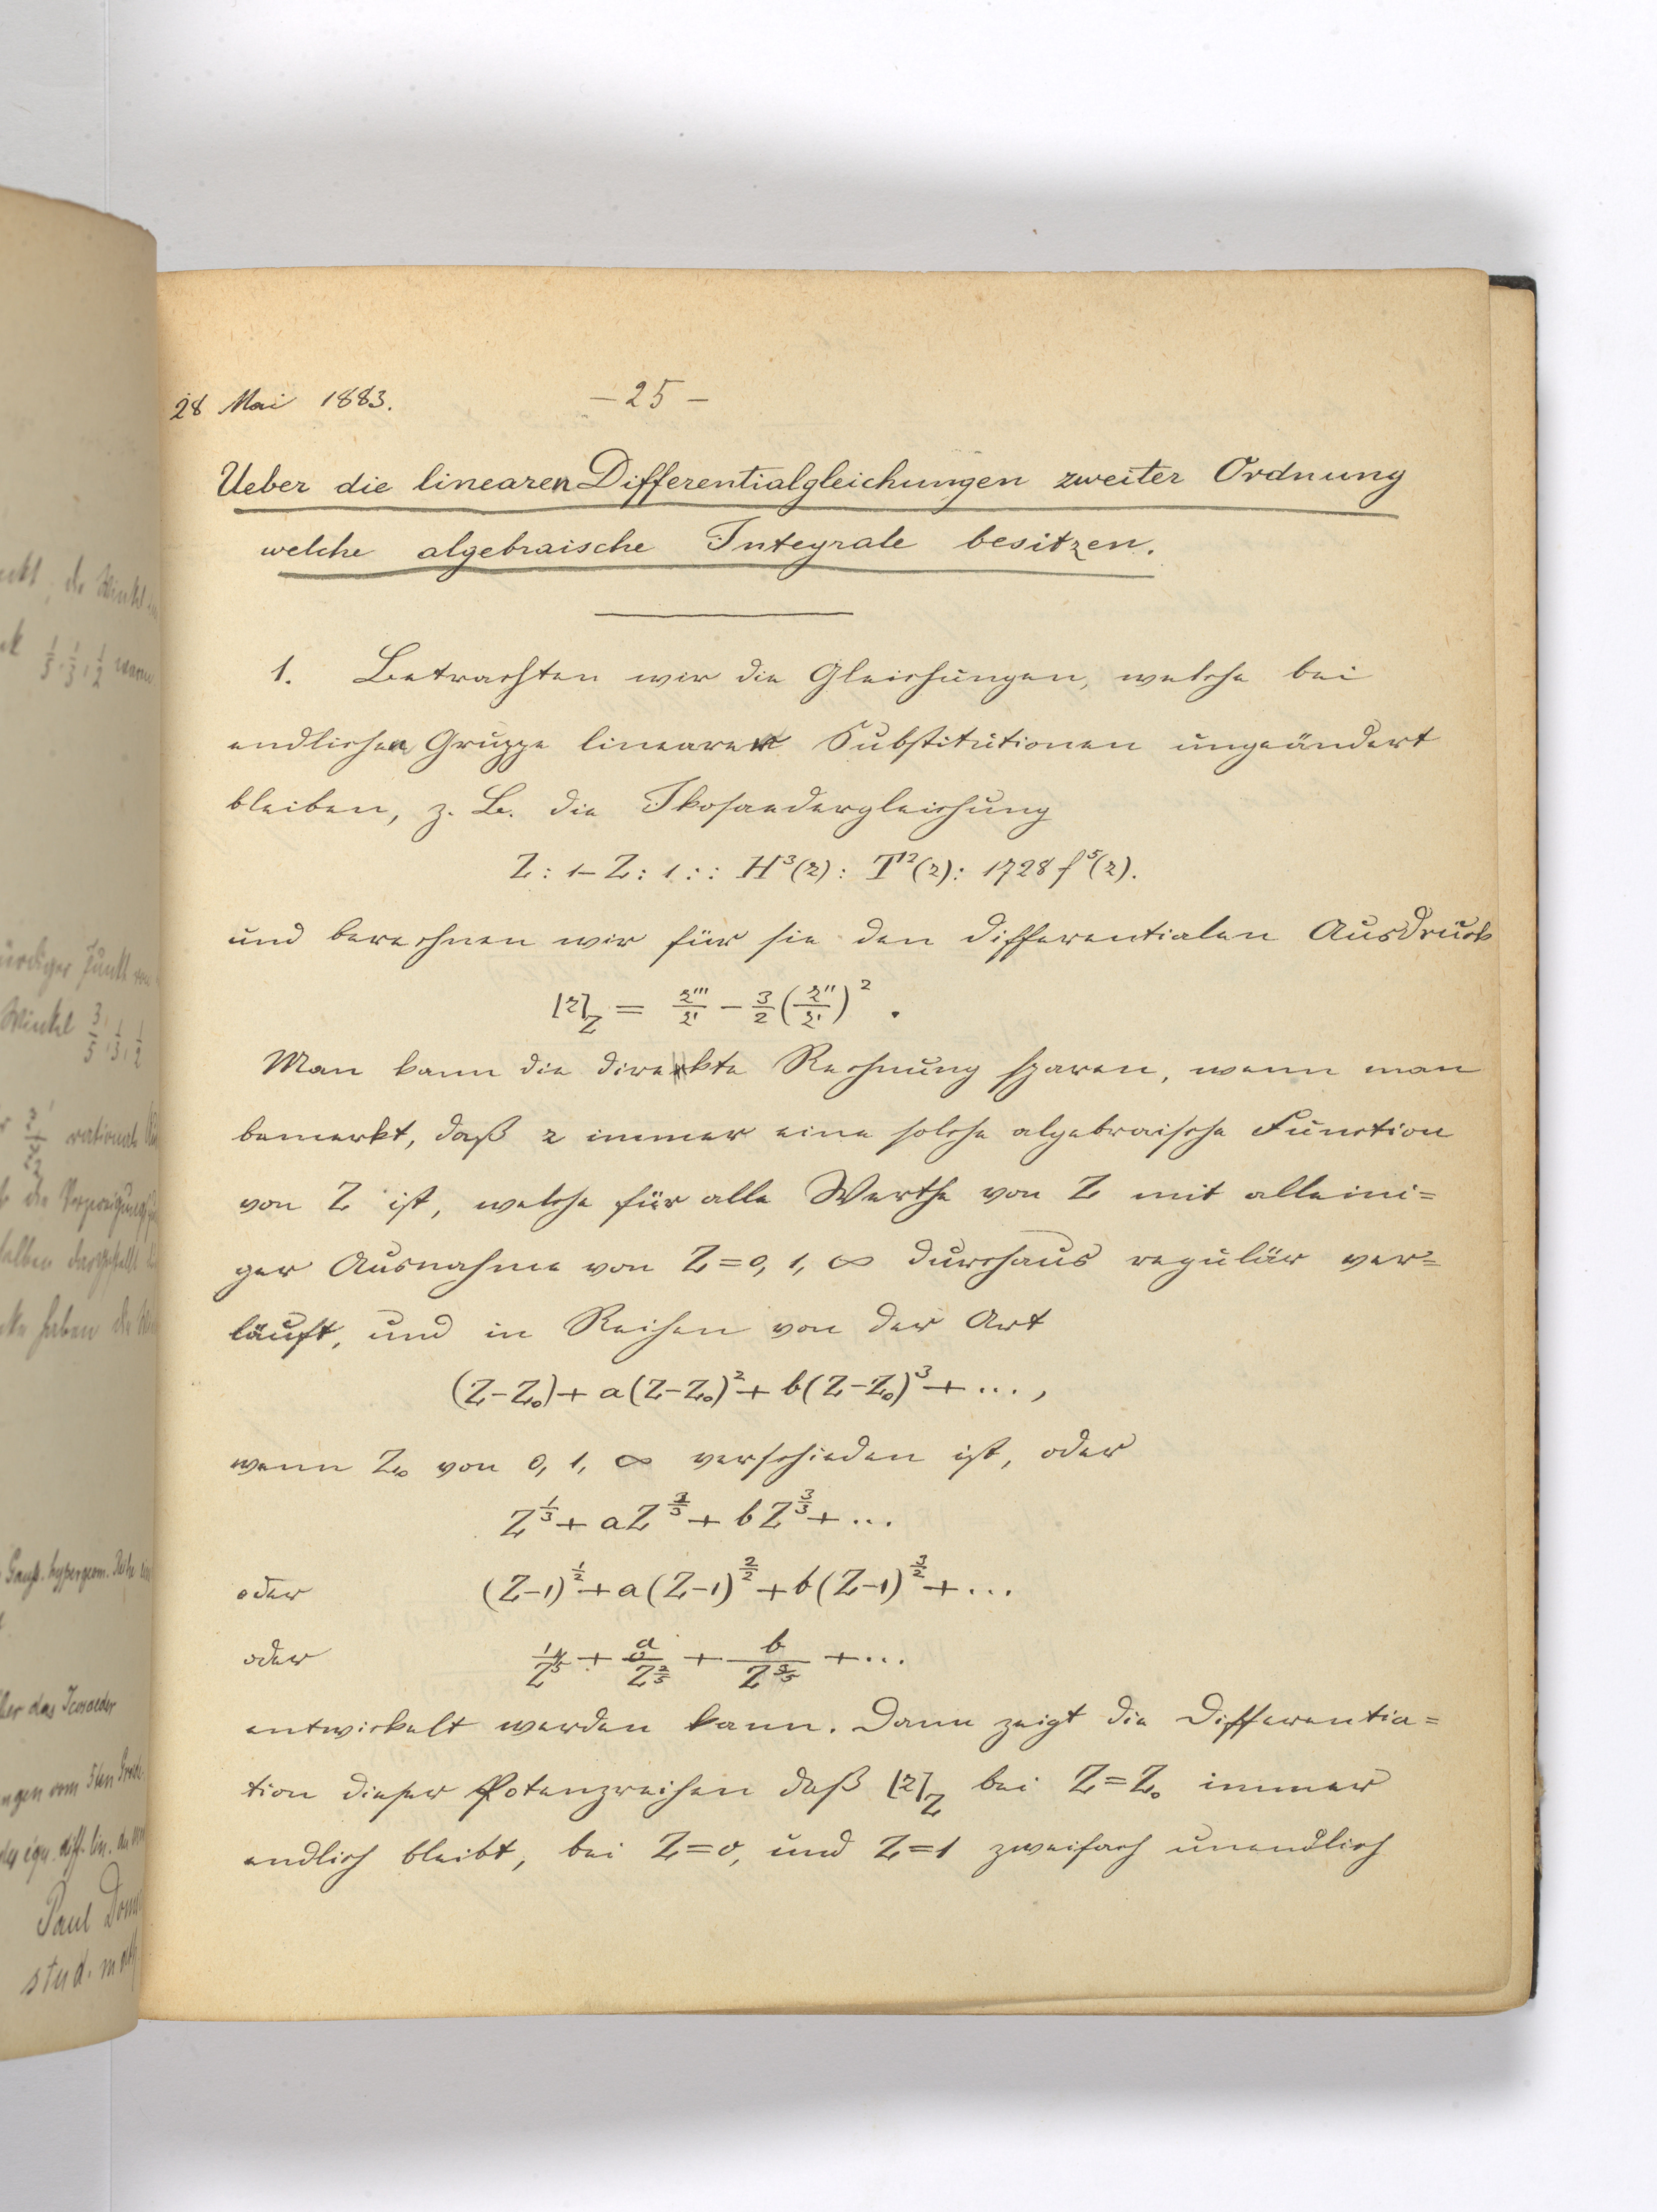 28 Mai 1883.
– 25 –
Ueber die linearen Differentialgleichungen zweiter Ordnung
welche algebraische Integrale besitzen.
1. Betrachten wir die Gleichungen, welche bei
endlichen Gruppe linearer Substitutionen ungeändert
bleiben, z. B. die Ikosaedergleichung
Z : 1–Z : 1 : : H³(z) : T¹²(z) : 1728 f⁵(z).
und berechnen wir für sie den differentialen Ausdruck
[z]_Z = z'''/z' – 3/2 (z''/z')² .
Man kann die direkte Rechnung sparen, wenn man
bemerkt, daß z immer eine solche algebraische Function
von Z ist, welche für alle Werthe von Z mit alleini=
ger Ausnahme von Z=0, 1, ∞ durchaus regulär ver=
läuft, und in Reihen von der Art
(Z–Z₀) + a(Z–Z₀)² + b(Z–Z₀)³ + ... ,
wenn Z₀ von 0, 1, ∞ verschieden ist, oder
Z^{1/3} + aZ^{2/3} + bZ^{3/3} + ...
oder (Z–1)^{1/2} + a(Z–1)^{2/2} + b(Z–1)^{3/2} + ...
oder 1/Z^{1/5} + a/Z^{2/5} + b/Z^{3/5} + ...
entwickelt werden kann. Dann zeigt die Differentia=
tion dieser Potenzreihen daß [z]_Z bei Z=Z₀ immer
endlich bleibt, bei Z=0, und Z=1 zweifach unendlich
Winkel 3/5, 1/3, 1/2
rational
Gauß. hypergeom. Reihe
das Icosaeder
vom 5ten Grade
Paul
stud. math